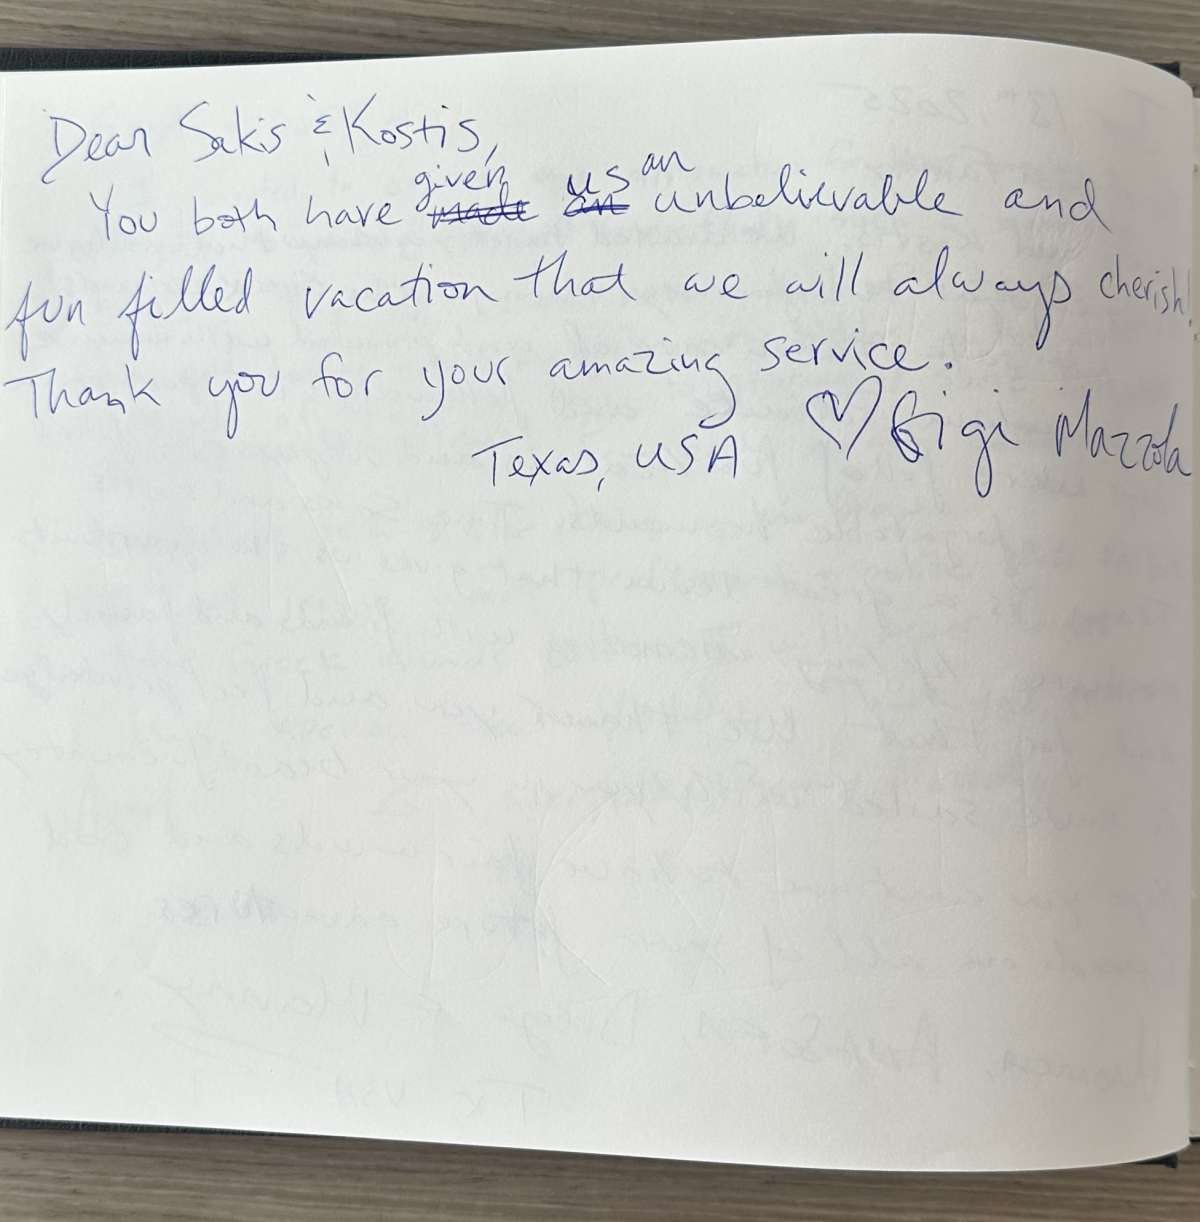 Dear Sakis & Kostis,
You both have given us an unbelievable and
fun filled vacation that we will always cherish!
Thank you for your amazing service.
♡ Gigi Mazzola
Texas, USA